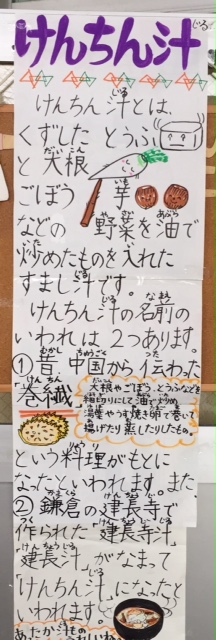 けんちん汁
けんちん汁とは
くずした とうふ
と 大根
ごぼう 芋
などの 野菜を油で
炒めたものを入れた
すまし汁です。
けんちん汁の名前の
いわれは 2つあります。
①昔、中国から 伝わった
「巻繊」
大根やごぼう、とうふなどを
細切りにして油で炒め
湯葉やうす焼き卵で巻いて
揚げたり蒸したりしたもの。
という料理がもとに
なったといわれます。また
②鎌倉の建長寺で
作られた「建長寺汁」
「建長汁」がなまって
「けんちん汁」になったと
いわれます。
あたたか汁の